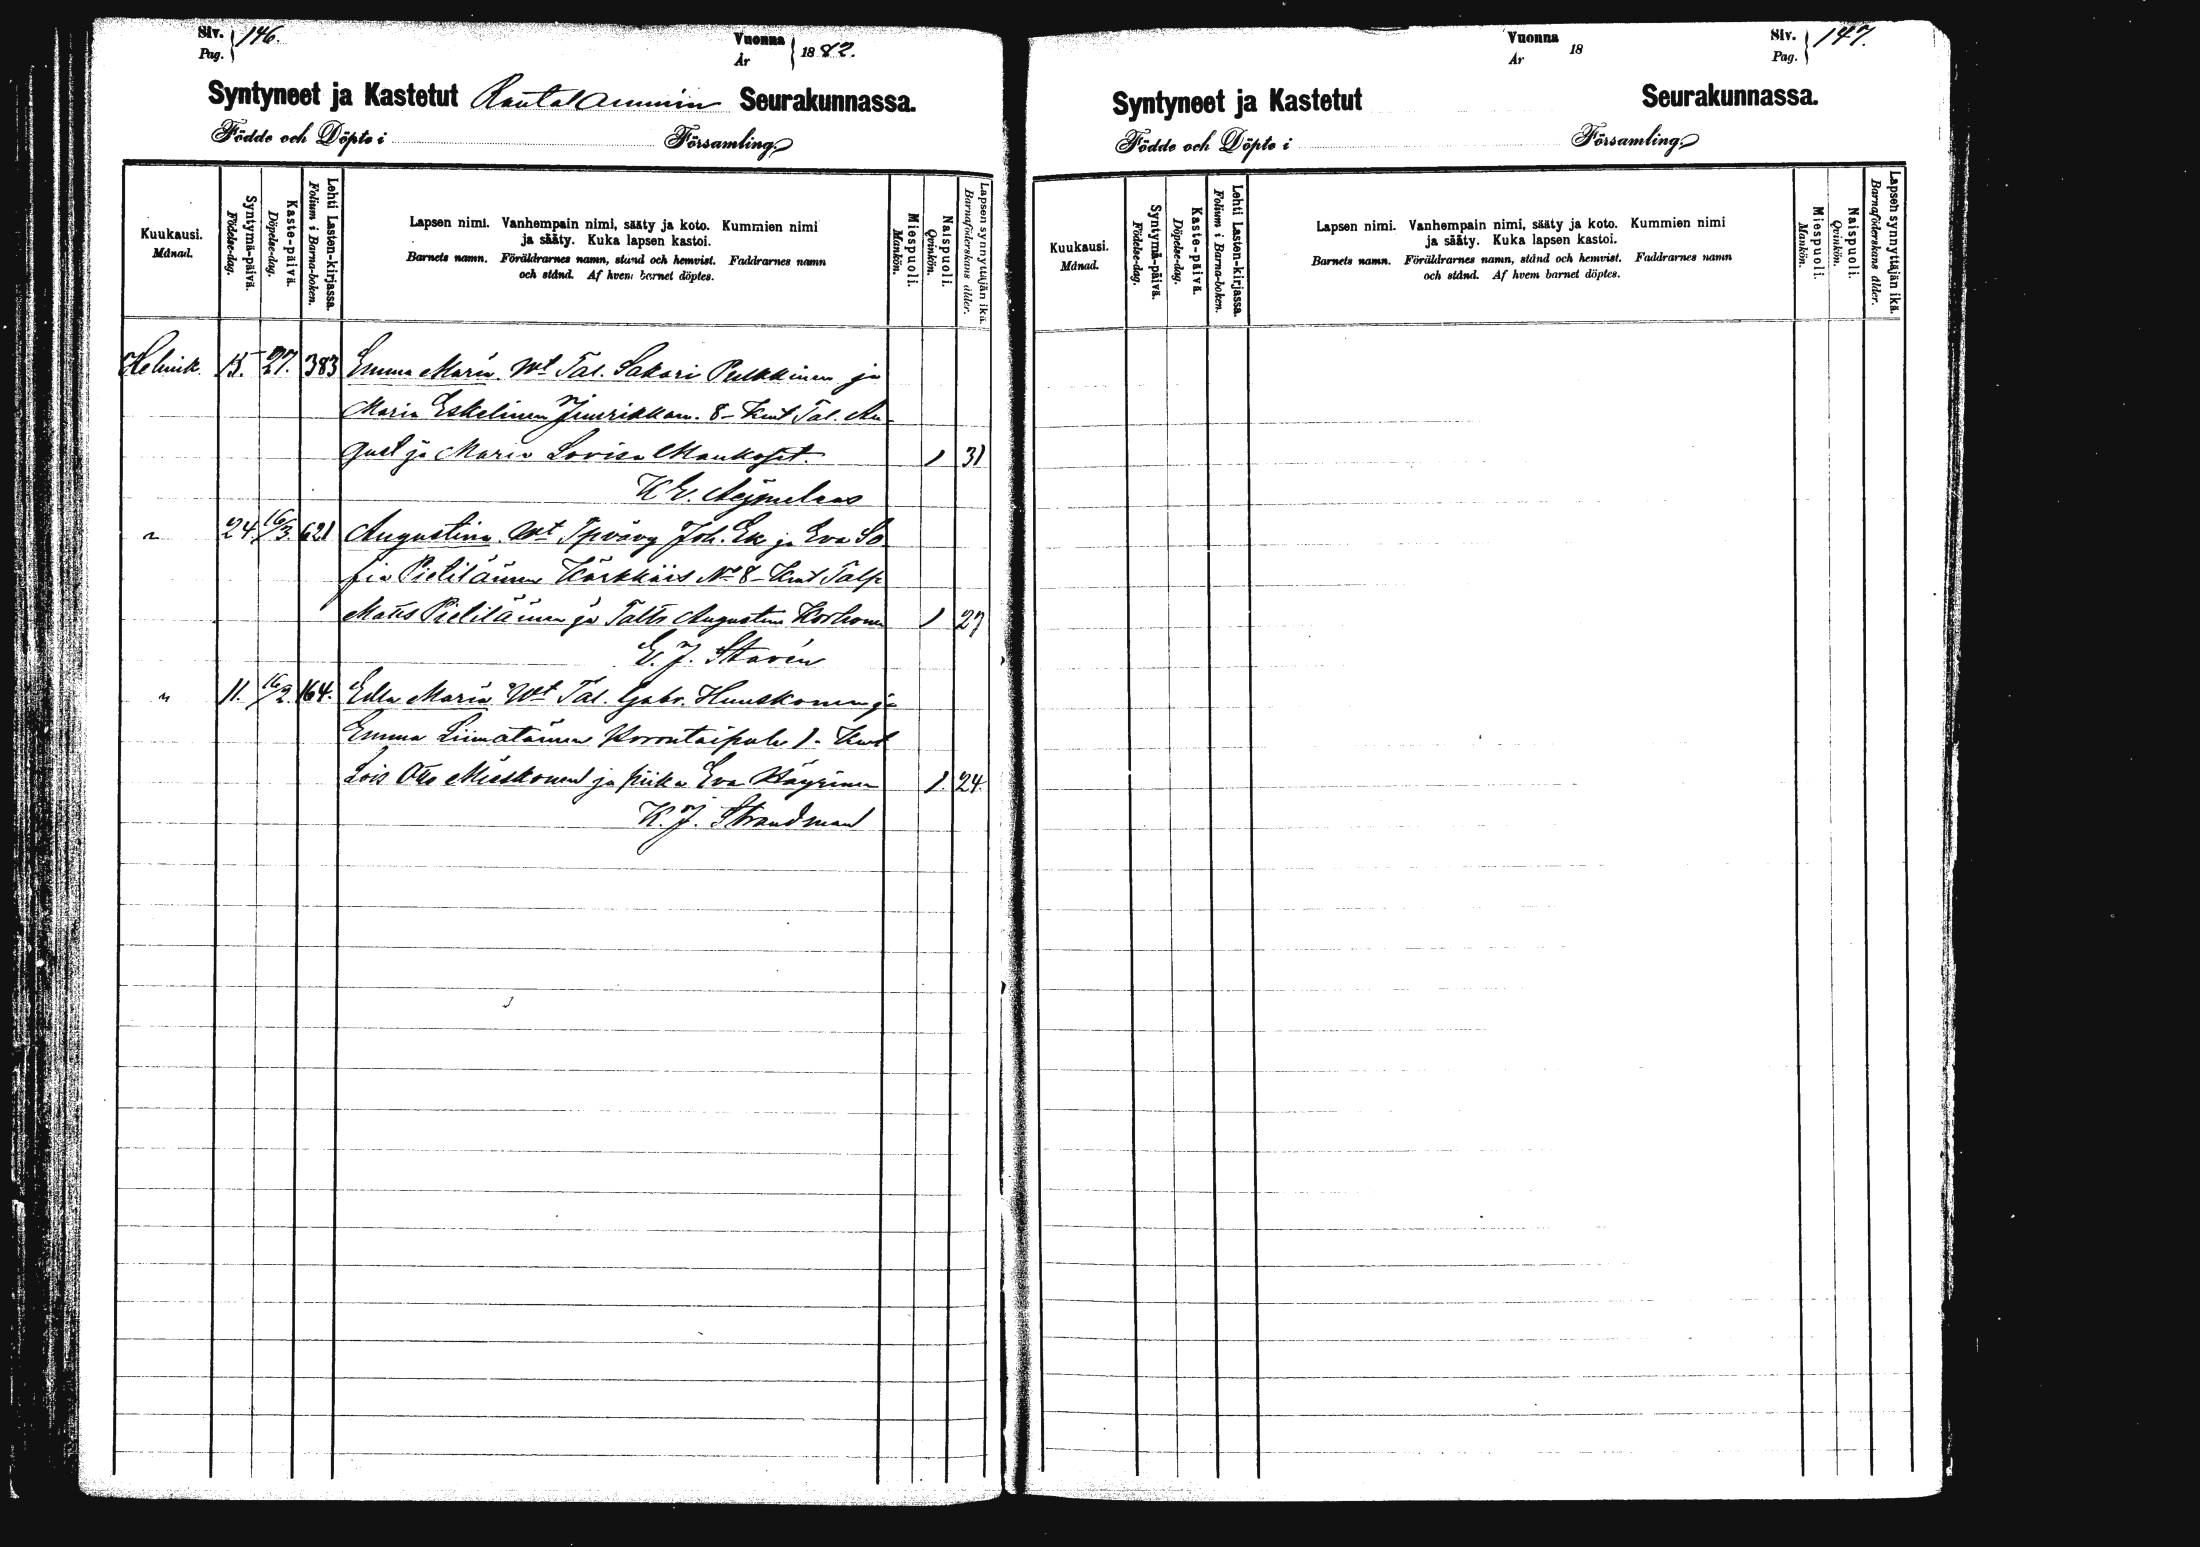 Siv. Pag. 146.
Vuonna År 1882.
Syntyneet ja Kastetut Rautalammin Seurakunnassa.
Födde och Döpte i Församling.
Kuukausi. Månad.
Syntymä-päivä. Födelse-dag.
Kaste-päivä. Döpelse-dag.
Lehti Lasten-kirjassa. Folium i Barna-boken.
Lapsen nimi. Vanhempain nimi, sääty ja koto. Kummien nimi
ja sääty. Kuka lapsen kastoi.
Barnets namn. Föräldrarnes namn, stånd och hemvist. Faddrarnes namn
och stånd. Af hvem barnet döptes.
Miespuoli. Mankön.
Naispuoli. Qvinkön.
Lapsen synnyttäjän ikä. Barnaföderskans ålder.
Helmik. 15. 27. 383 Emma Maria. Wt Tal. Sakari Pulkkinen ja
Maria Eskelinen 8 - Kmt Tal. Au-
gust ja Maria Lovisa
K E.
" 24. 16/3. 621 Augustina. Wt Joh. Ek ja Eva So
fia Pietiläinen Kärkkäis No 8 - Kmt
Matts Pietiläinen ja Augustina Korhonen 1 27
E. J. Stavén
" 11. 16/2. 164. Edla Maria Wt Tal. Gabr. Huuskonen ja
Emma Liimatainen 1 - Kmt
Lois Otto ja piika Eva Häyrinen 1. 24.
K. J. Strandman
1 31
Siv. Pag. 147.
Vuonna År 18
Syntyneet ja Kastetut Seurakunnassa.
Födde och Döpte i Församling.
Kuukausi. Månad.
Syntymä-päivä. Födelse-dag.
Kaste-päivä. Döpelse-dag.
Lehti Lasten-kirjassa. Folium i Barna-boken.
Lapsen nimi. Vanhempain nimi, sääty ja koto. Kummien nimi
ja sääty. Kuka lapsen kastoi.
Barnets namn. Föräldrarnes namn, stånd och hemvist. Faddrarnes namn
och stånd. Af hvem barnet döptes.
Miespuoli. Mankön.
Naispuoli. Qvinkön.
Lapsen synnyttäjän ikä. Barnaföderskans ålder.